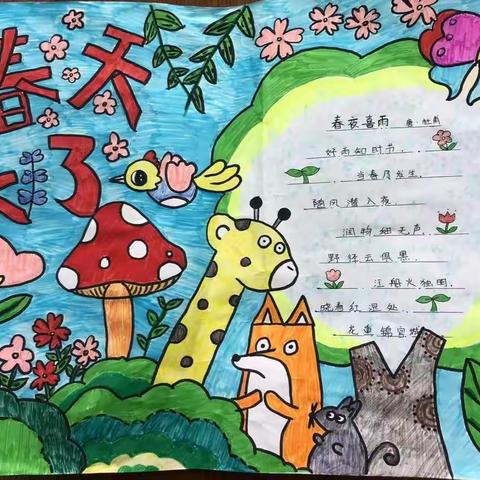 春天
来了
春夜喜雨 唐·杜甫
好雨知时节,
当春乃发生。
随风潜入夜,
润物细无声。
野径云俱黑,
江船火独明。
晓看红湿处,
花重锦官城